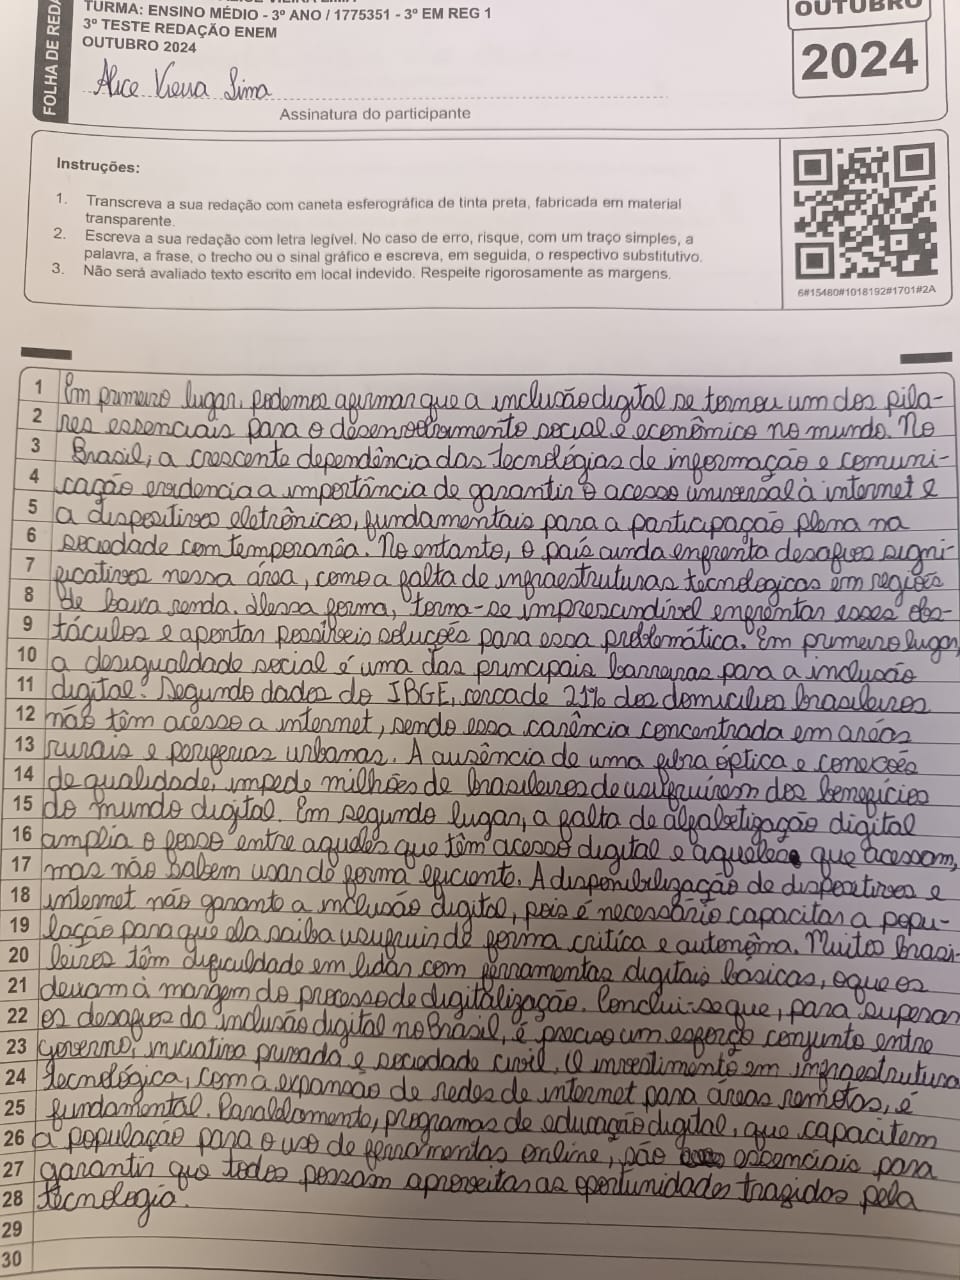 FOLHA DE REDA
TURMA: ENSINO MÉDIO - 3º ANO / 1775351 - 3º EM REG 1
3º TESTE REDAÇÃO ENEM
OUTUBRO 2024
OUTUBRO
2024
Alice Vieira Lima
Assinatura do participante
Instruções:
1. Transcreva a sua redação com caneta esferográfica de tinta preta, fabricada em material
transparente.
2. Escreva a sua redação com letra legível. No caso de erro, risque, com um traço simples, a
palavra, a frase, o trecho ou o sinal gráfico e escreva, em seguida, o respectivo substitutivo.
3. Não será avaliado texto escrito em local indevido. Respeite rigorosamente as margens.
6#15480#1018192#1701#2A
1 Em primeiro lugar, podemos afirmar que a inclusão digital se tornou um dos pila-
2 res essenciais para o desenvolvimento social e econômico no mundo. No
3 Brasil, a crescente dependência das tecnológias de informação e comuni-
4 cação evidencia a importância de garantir o acesso universal à internet e
5 a dispositivos eletrônicos, fundamentais para a participação plena na
6 sociedade contemporanêa. No entanto, o país ainda enfrenta desafios signi-
7 ficativos nessa área, como a falta de infraestruturas tecnologicas em regiões
8 de baixa renda. Dessa forma, torna-se imprescindível enfrentar esses obs-
9 táculos e apontar possíveis soluções para essa problemática. Em primeiro lugar,
10 a desigualdade social é uma das principais barreiras para a inclusão
11 digital. Segundo dados do IBGE, cerca de 21% dos domicílios brasileiros
12 não têm acesso a internet, sendo essa carência concentrada em areás
13 rurais e periferias urbanas. A ausência de uma fibra óptica e conexões
14 de qualidade, impede milhões de brasileiros de usufruírem dos benefícios
15 do mundo digital. Em segundo lugar, a falta de alfabetização digital
16 amplia o fosso entre aqueles que têm acesso digital e aqueles que acessam,
17 mas não sabem usar de forma eficiente. A disponibilização de dispositivos e
18 internet não garante a inclusão digital, pois é necessário capacitar a popu-
19 lação para que ela saiba usufruir de forma critíca e autonôma. Muitos brasi-
20 leiros têm dificuldade em lidar com ferramentas digitais básicas, o que os
21 deixam à margem do processo de digitalização. Conclui-se que, para superar
22 os desafios da inclusão digital no Brasil, é preciso um esforço conjunto entre
23 governo, iniciativa privada e sociedade civil. O investimento em infraestrutura
24 tecnológica, com a expansão de redes de internet para áreas remotas, é
25 fundamental. Paralelamente, programas de educação digital, que capacitem
26 a população para o uso de ferramentas online, são essenciais para
27 garantir que todos possam aproveitar as oportunidades tragidos pela
28 tecnologia.
29
30